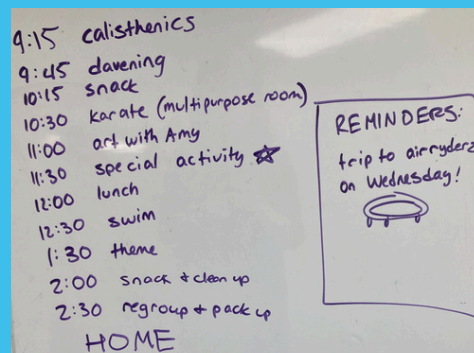 9:15 calisthenics
9:45 davening
10:15 snack
10:30 karate (multipurpose room)
11:00 art with Amy
11:30 special activity
12:00 lunch
12:30 swim
1:30 theme
2:00 snack + clean up
2:30 regroup + pack up
HOME
REMINDERS:
trip to airryderz
on Wednesday!